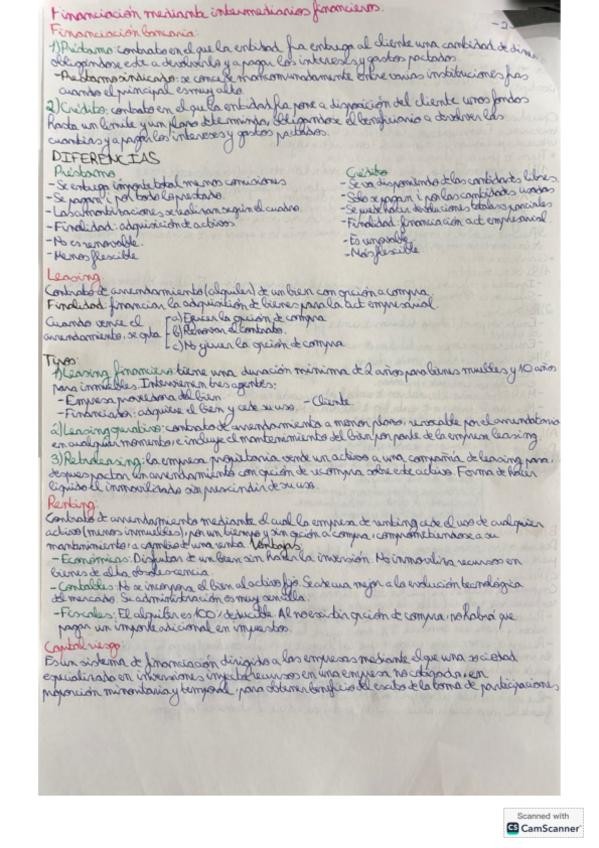 Financiación mediante intermediarios financieros.
-2-
Financiación bancaria:
1) Préstamo: contrato en el que la entidad fra entrega al cliente una cantidad de diner
obligándose este a devolverlo y a pagar los intereses y gastos pactados.
- Préstamo sindicado: se concede mancomunadamente entre varias instituciones fras
cuando el principal es muy alto.
2) Crédito: contrato en el q la entidad fra pone a disposición del cliente unos fondos
hasta un límite y un plazo determinado, obligándose el beneficiario a devolver las
cuantías y a pagar los intereses y gastos pactados.
DIFERENCIAS
Préstamo
- Se entrega importe total menos comisiones
- Se pagan i por todo lo prestado.
- Las amortizaciones se realizan según el cuadro.
- Finalidad: adquisición de activos
- No es renovable.
- Menos flexible
Crédito
- Se va disponiendo de las cantidades libres.
- Sólo se pagan i por las cantidades usadas
- Se puede hacer devoluciones totales o parciales
- Finalidad: financiación act empresarial
- Es renovable
- Más flexible.
Leasing:
Contrato de arrendamiento (alquiler) de un bien con opción a compra.
Finalidad: financiar la adquisición de bienes para la act empresarial.
Cuando vence el
arrendamiento, se opta
a) Ejercer la opción de compra
b) Renovar el contrato.
c) No ejercer la opción de compra
Tipos:
1) Leasing financiero: tiene una duración mínima de 2 años para bienes muebles y 10 años
para inmuebles. Intervienen tres agentes:
- Empresa proveedora del bien
- Cliente
- Financiador: adquiere el bien y cede su uso.
2) Leasing operativo: contrato de arrendamiento a menor plazo, revocable por el arrendatario
en cualquier momento e incluye el mantenimiento del bien por parte de la empresa leasing.
3) Retroleasing: la empresa propietaria vende un activo a una compañía de leasing para,
después pactar un arrendamiento con opción de recompra sobre este activo. Forma de hacer
líquido el inmovilizado sin prescindir de su uso.
Renting:
Contrato de arrendamiento mediante el cual la empresa de renting cede el uso de cualquier
activo (menos inmuebles), por un tiempo y sin opción a compra, comprometiéndose a su
mantenimiento, a cambio de una renta. Ventajas:
- Económicas: Disfrutar de un bien sin hacer la inversión. No inmoviliza recursos en
bienes de alta obsolescencia.
- Contables: No se incorpora el bien al activo fijo. Se adecua mejor a la evolución tecnológica
del mercado. Su administración es muy sencilla.
- Fiscales: El alquiler es 100% deducible. Al no existir opción de compra, no habrá que
pagar un importe adicional en impuestos.
Capital riesgo:
Es un sistema de financiación dirigido a las empresas mediante el que una sociedad
especializada en inversiones inyecta recursos en una empresa no cotizada, en
proporción minoritaria y temporal, para obtener beneficio del éxito de la toma de participaciones
Scanned with
CS CamScanner